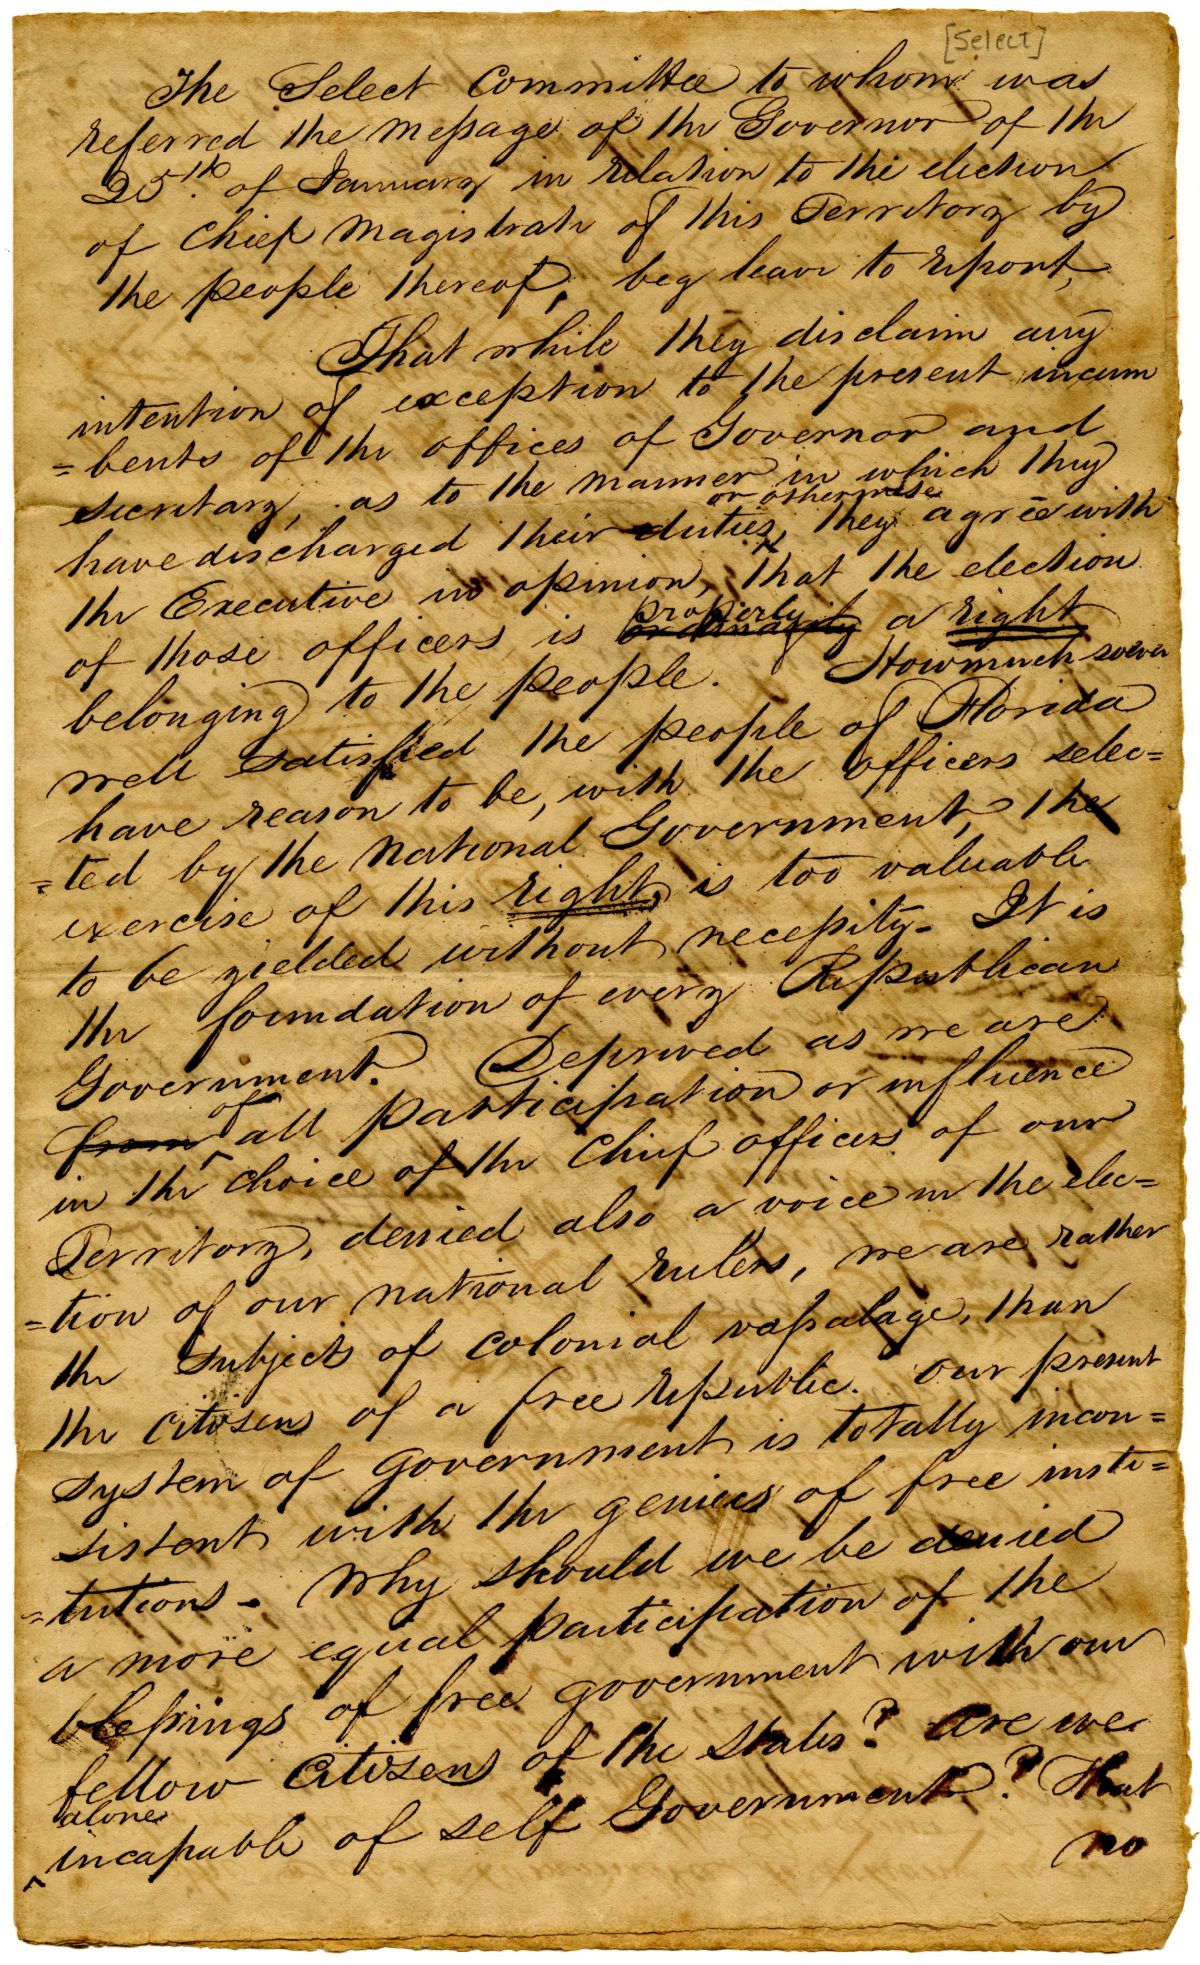 [Select]
The Select Committee to whom was
referred the message of the Governor of the
25th. of January in relation to the election
of Chief Magistrate of this Territory by
the people thereof, beg leave to report,
That while they disclaim any
intention of exception to the present incum
=bents of the offices of Governor and
secretary, as to the manner in which they
or otherwise
have discharged their duties, they agree with
the Executive in opinion, that the election
properly
of those officers is ordinarily a right
belonging to the people. Howmuch soever
well satisfied the people of Florida
have reason to be, with the officers selec=
=ted by the National Government, the
exercise of this right, is too valuable
to be yielded without necessity. It is
the foundation of every Republican
Government. Deprived as we are
of
from all participation or influence
in the choice of the Chief officers of our
Territory, denied also a voice in the elec=
=tion of our national rulers, we are rather
the subjects of colonial vassalage, than
the citizens of a free republic. Our present
system of government is totally incon=
sistent with the genius of free insti=
=tutions. Why should we be denied
a more equal participation of the
blessings of free government with our
fellow citizens of the States? Are we
alone
incapable of self Government? That
no